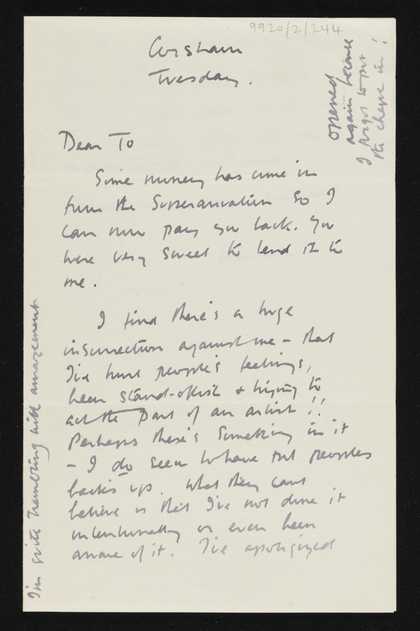 9920/2/244
Corsham
Tuesday.
opened
again because
I forgot to put
the cheque in!
Dear To
Some money has come in
from the Superannuation so I
can now pay you back. You
were very sweet to lend it to
me.
I find there's a huge
insurrection against me – that
I've hurt people's feelings,
been stand-offish & trying to
act the part of an artist!!
Perhaps there's something in it
– I do seem to have put peoples
backs up. What they cant
believe is that I've not done it
intentionally or even been
aware of it. I've apologized
I'm quite trembling with amazement